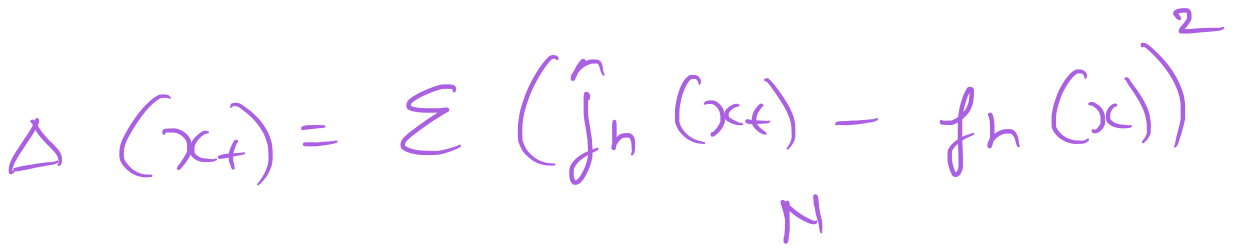 Δ (x_t) = Σ (f̂_n (x_t) - f_n (x))²
N